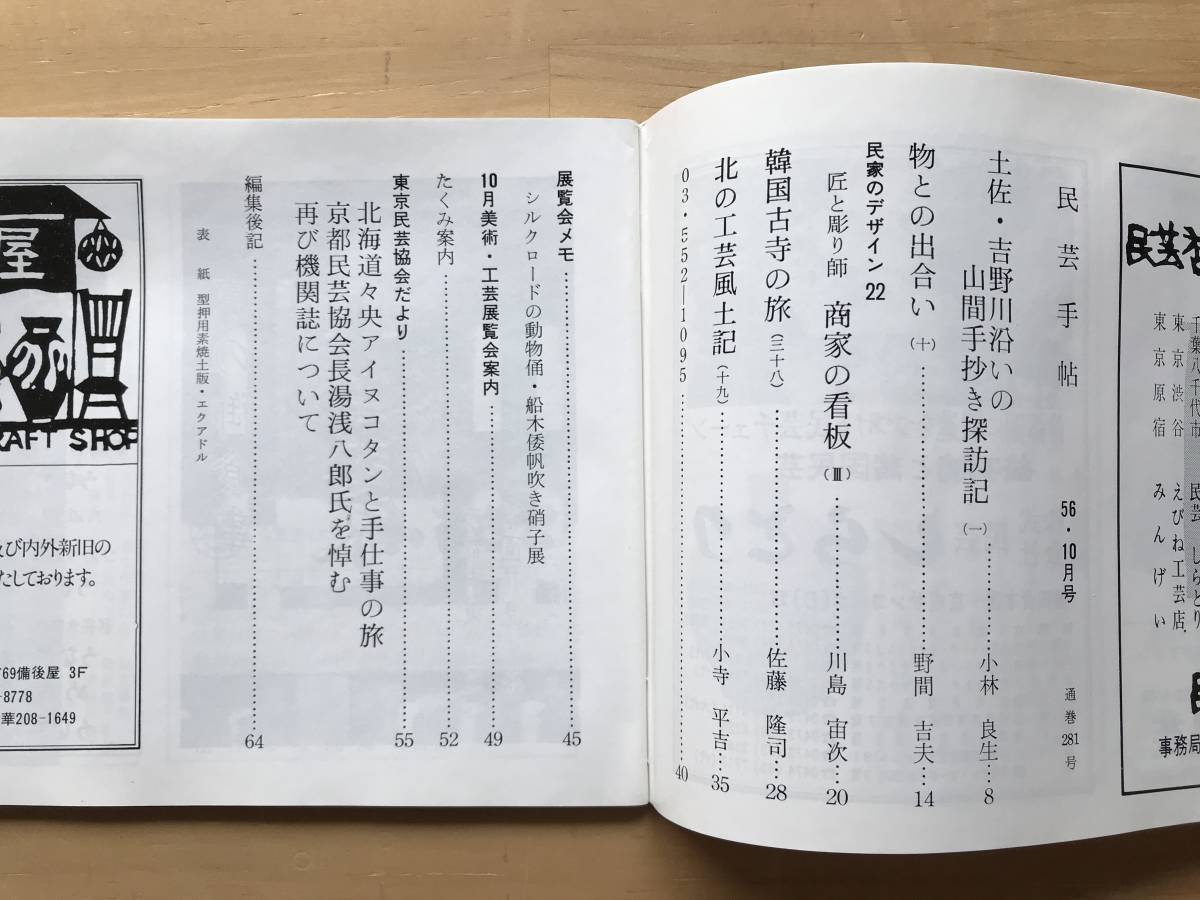 民芸手帖 56・10月号 通巻281号
土佐・吉野川沿いの
山間手抄き探訪記(一)………小林 良生…8
物との出合い(十)………野間 吉夫…14
民家のデザイン22
匠と彫り師 商家の看板(Ⅲ)………川島 宙次…20
韓国古寺の旅(三十八)………佐藤 隆司…28
北の工芸風土記(十九)………小寺 平吉…35
03・552―1095………40
展覧会メモ………45
シルクロードの動物俑・船木倭帆吹き硝子展
10月美術・工芸展覧会案内………49
たくみ案内………52
東京民芸協会だより………55
北海道々央アイヌコタンと手仕事の旅
京都民芸協会長湯浅八郎氏を悼む
再び機関誌について
編集後記………64
表 紙 型押用素焼土版・エクアドル
千葉八千代市 民芸 しらとり
東京渋谷 えびね工芸店
東京原宿 みんげい
事務局
屋
RAFT SHOP
及び内外新旧の
たしております。
769備後屋 3F
-8778
華208-1649